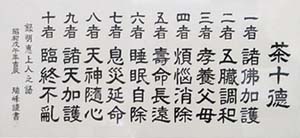 茶十德
一者諸佛加護
二者五臟調和
三者孝養父母
四者煩惱消除
五者壽命長遠
六者睡眠自除
七者息災延命
八者天神隨心
九者諸天加護
十者臨終不亂
録明惠上人之語
昭和戊午年吉辰
謹書